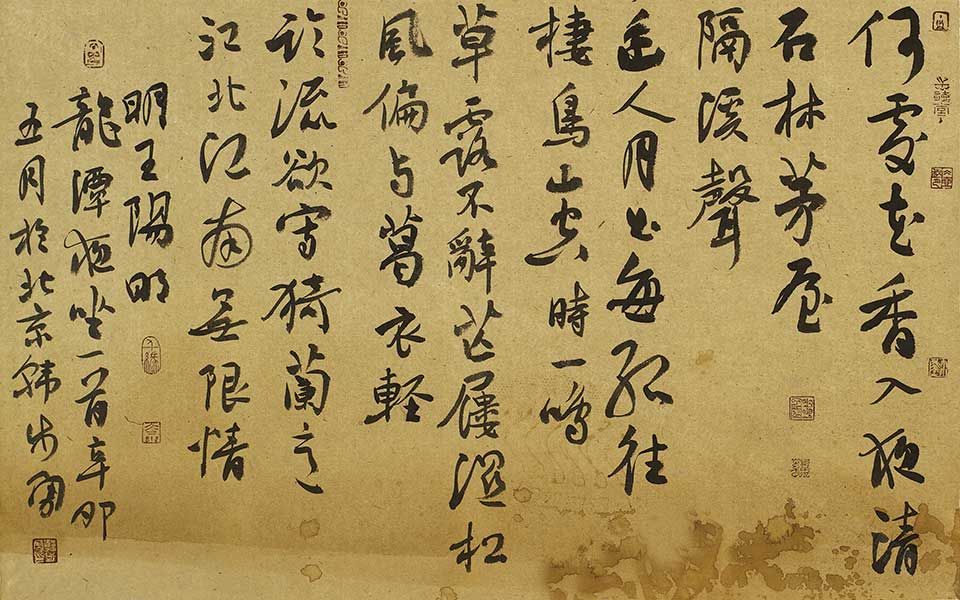 何處花香入夜清
石林茅屋
隔溪聲
幽人月出每孤往
棲鳥山空時一鳴
草露不辭芒屨濕松
風偏與葛衣輕
臨流欲寫猗蘭意
江北江南無限情
明王陽明
龍潭夜坐一首辛卯
五月於北京韓